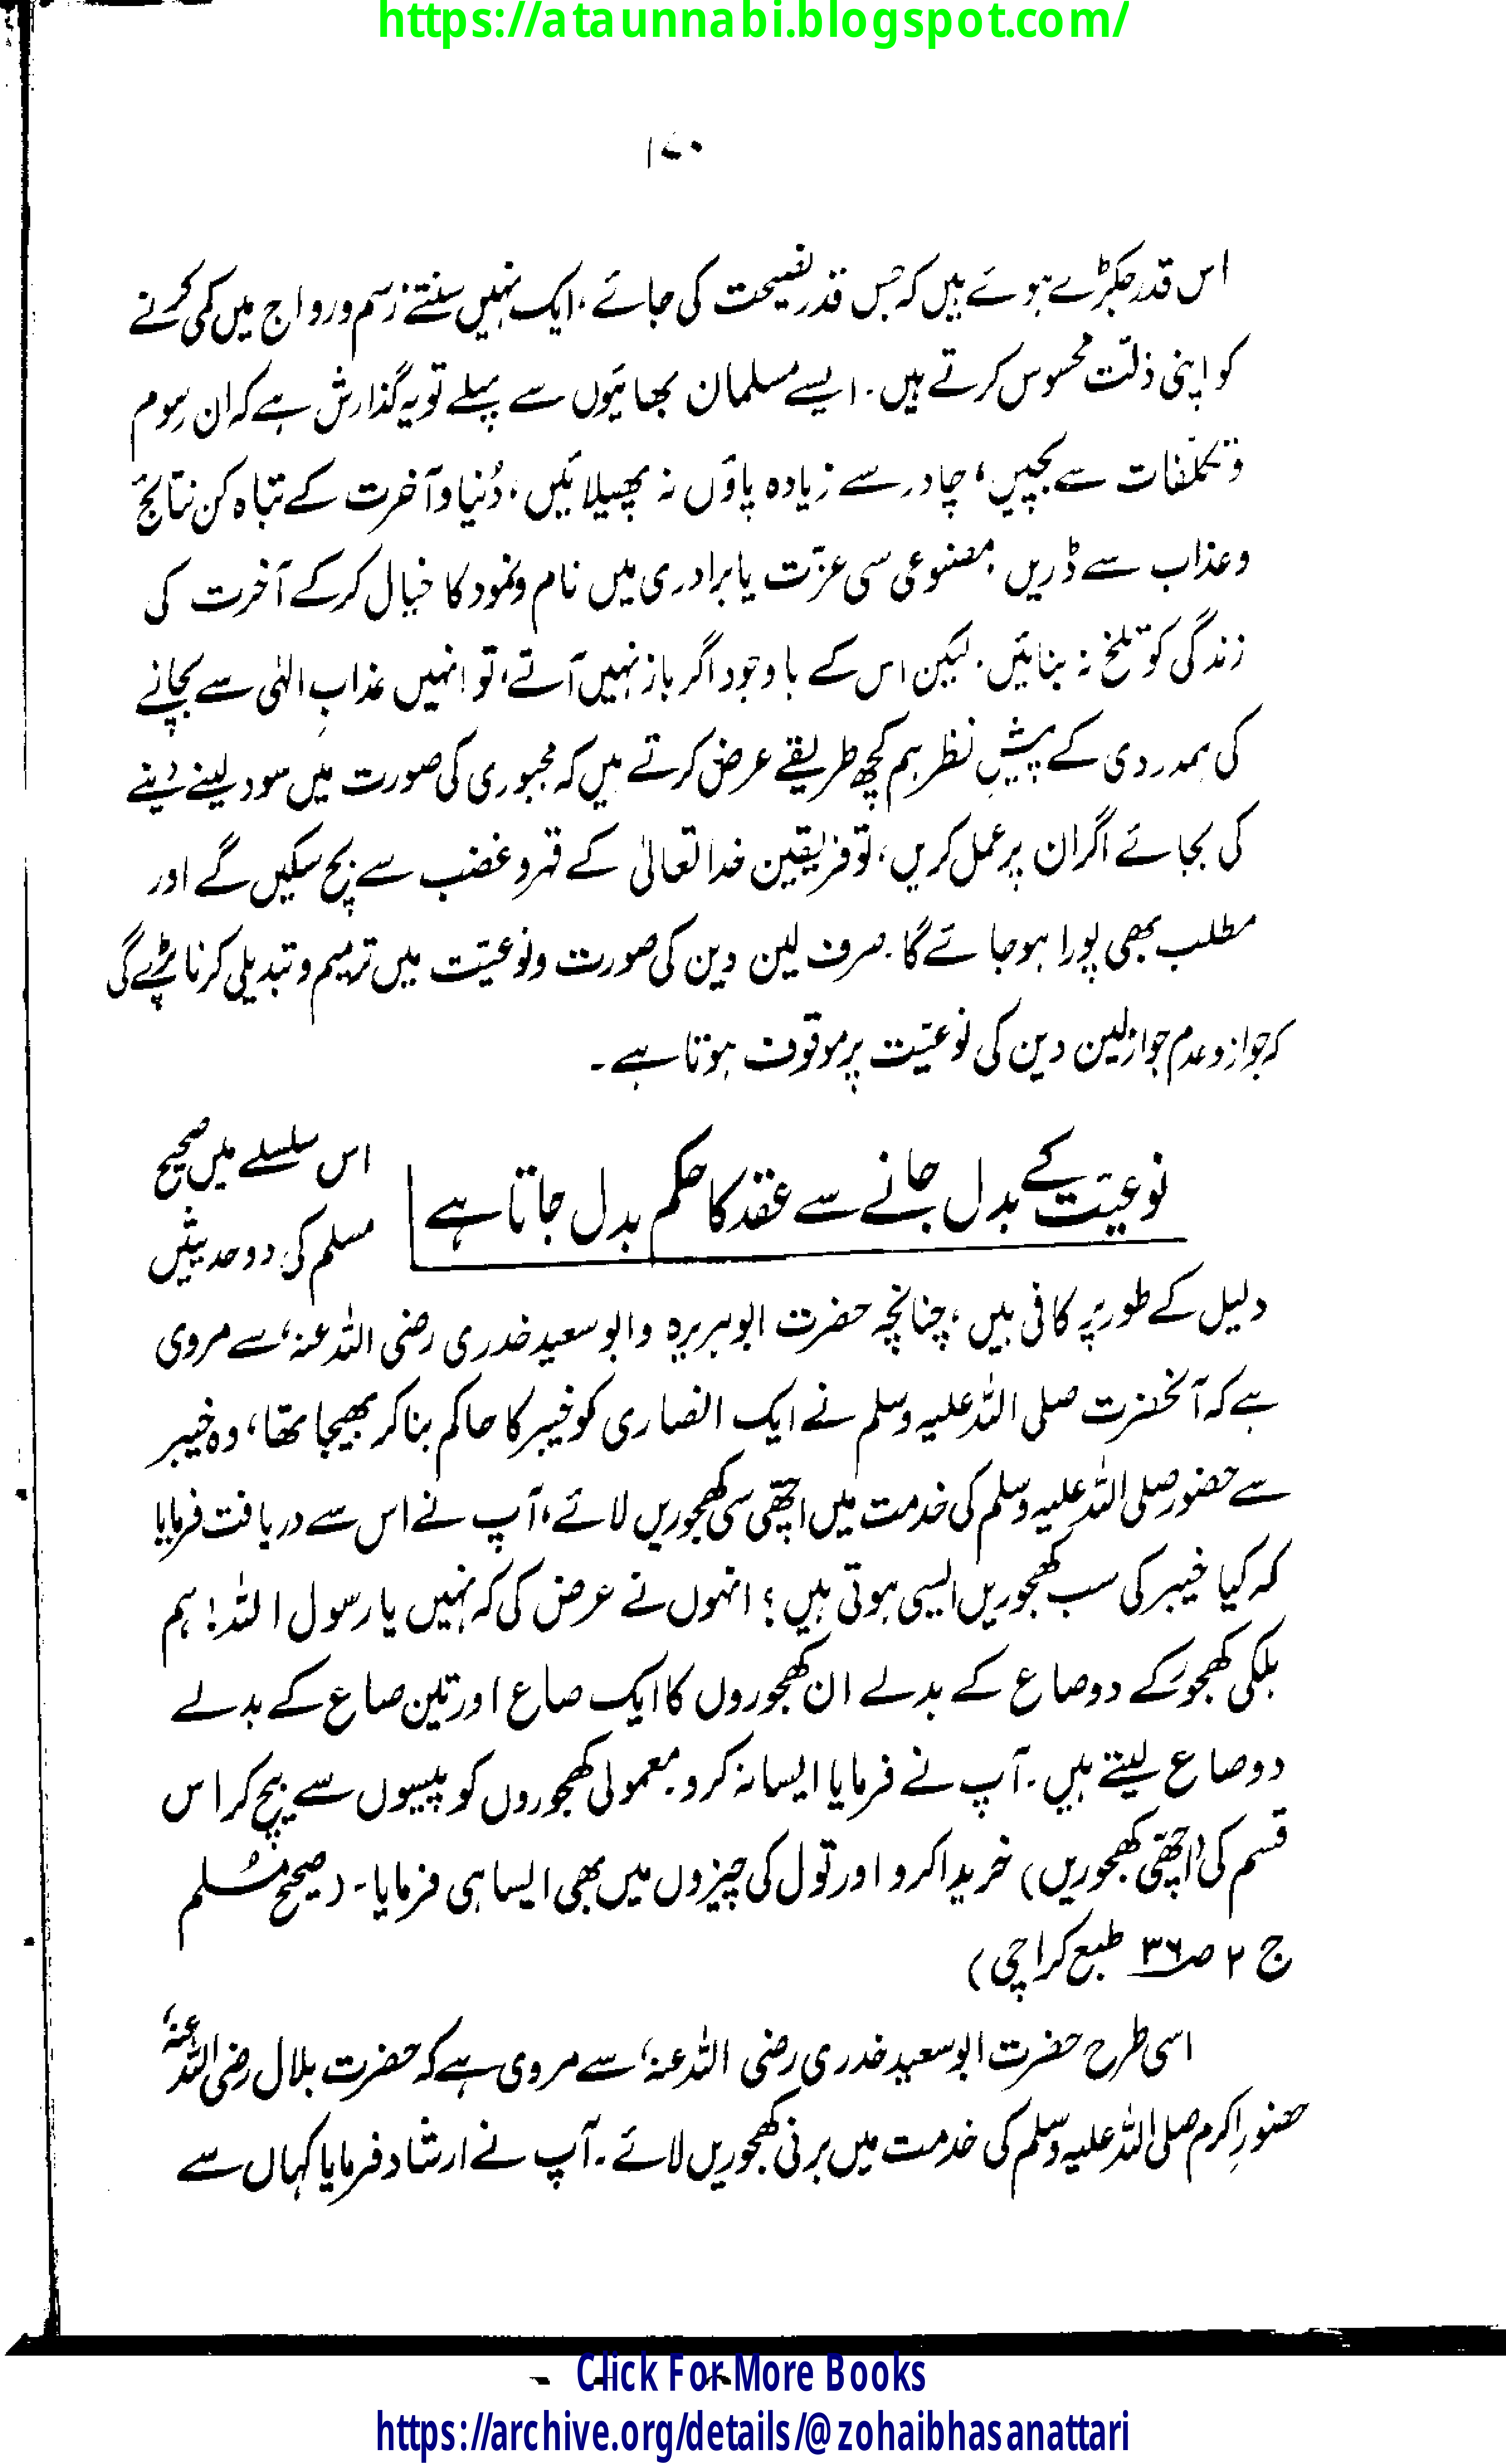 https://ataunnabi.blogspot.com/
۱۷۰
اس قدر جکڑے ہوئے ہیں کہ جس قدر نصیحت کی جائے، ایک نہیں سنتے رسم و رواج میں کمی کرنے
کو اپنی ذلّت محسوس کرتے ہیں۔ ایسے مسلمان بھائیوں سے پہلے تو یہ گذارش ہے کہ ان رسوم
و تکلّفات سے بچیں، چادر سے زیادہ پاؤں نہ پھیلائیں، دُنیا و آخرت کے تباہ کن نتائج
و عذاب سے ڈریں، مصنوعی سی عزّت یا برادری میں نام و نمود کا خیال کرکے آخرت کی
زندگی کو تلخ نہ بنائیں۔ لیکن اس کے باوجود اگر باز نہیں آتے، تو انہیں عذابِ الٰہی سے بچانے
کی ہمدردی کے پیشِ نظر ہم کچھ طریقے عرض کرتے ہیں کہ مجبوری کی صورت میں سود لینے دینے
کی بجائے اگر ان پر عمل کریں، تو فریقین خدا تعالیٰ کے قہر و غضب سے بچ سکیں گے اور
مطلب بھی پورا ہو جائے گا۔ صرف لین دین کی صورت و نوعیّت میں ترمیم و تبدیلی کرنا پڑے گی
کہ جواز و عدم جواز لین دین کی نوعیّت پر موقوف ہوتا ہے۔
نوعیّت کے بدل جانے سے عقد کا حکم بدل جاتا ہے
اس سلسلے میں صحیح
مسلم کی دو حدیثیں
دلیل کے طور پر کافی ہیں، چنانچہ حضرت ابوہریرہ و ابوسعید خدری رضی اللہ عنہ، سے مروی
ہے کہ آنحضرت صلی اللہ علیہ وسلم نے ایک انصاری کو خیبر کا حاکم بنا کر بھیجا تھا، وہ خیبر
سے حضور صلی اللہ علیہ وسلم کی خدمت میں اچھّی سی کھجوریں لائے، آپ نے اس سے دریافت فرمایا
کہ کیا خیبر کی سب کھجوریں ایسی ہوتی ہیں؟ انہوں نے عرض کی کہ نہیں یا رسول اللہ! ہم
ہلکی کھجور کے دو صاع کے بدلے ان کھجوروں کا ایک صاع اور تین صاع کے بدلے
دو صاع لیتے ہیں۔ آپ نے فرمایا ایسا نہ کرو۔ معمولی کھجوروں کو پیسوں سے بیچ کر اس
قسم کی (اچھّی کھجوریں) خریدا کرو اور تول کی چیزوں میں بھی ایسا ہی فرمایا۔ (صحیح مُسلم
ج ۲ صـ ۳۶ طبع کراچی)
اسی طرح حضرت ابوسعید خدری رضی اللہ عنہ، سے مروی ہے کہ حضرت بلال رضی اللہ عنہ،
حضورِ اکرم صلی اللہ علیہ وسلم کی خدمت میں برنی کھجوریں لائے۔ آپ نے ارشاد فرمایا کہاں سے
Click For More Books
https://archive.org/details/@zohaibhasanattari